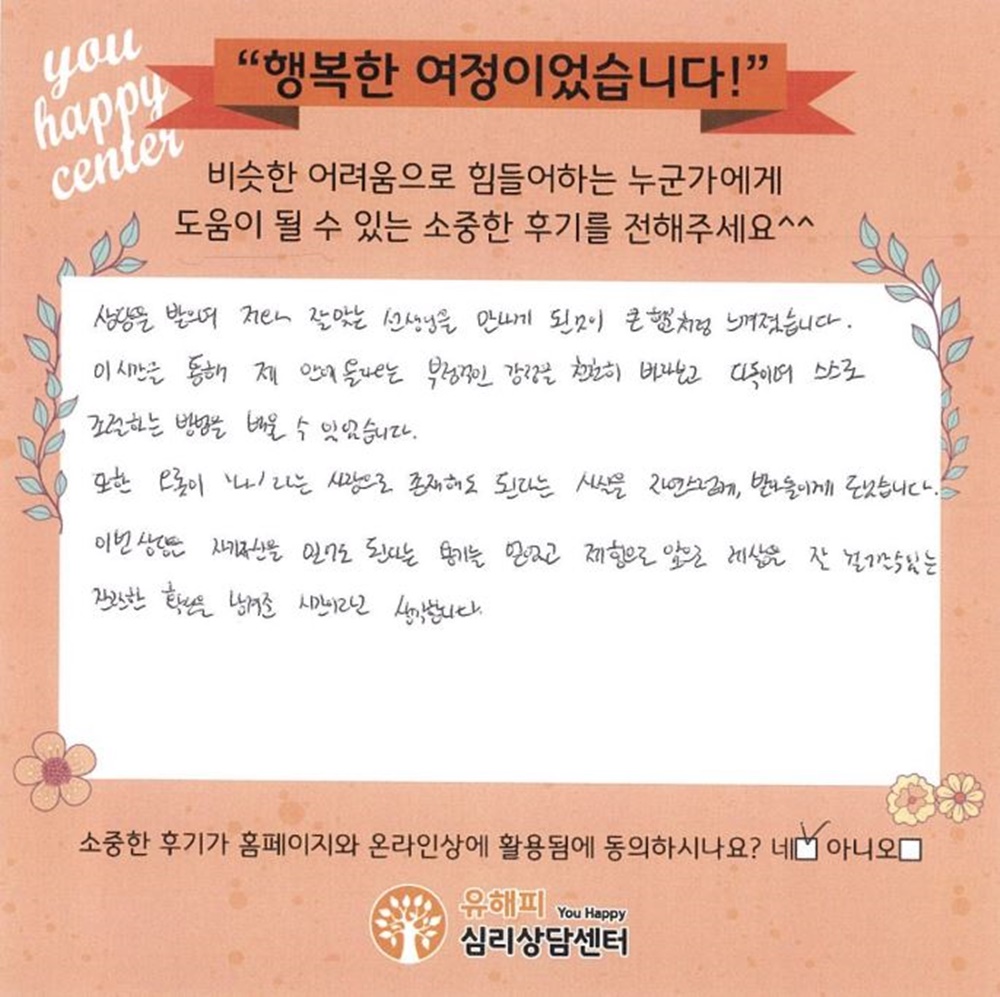 you
happy
center
“행복한 여정이었습니다!”
비슷한 어려움으로 힘들어하는 누군가에게
도움이 될 수 있는 소중한 후기를 전해주세요^^
상담을 받으며 저와 잘 맞는 선생님을 만나게 된 것이 큰 행운처럼 느껴졌습니다.
이 시간을 통해 제 안에 올라오는 부정적인 감정을 천천히 바라보고 다독이며 스스로
조절하는 방법을 배울 수 있었습니다.
또한 오롯이 '나' 라는 사람으로 존재해도 된다는 사실을 자연스럽게, 받아들이게 되었습니다.
이번 상담은 자기자신을 믿어도 된다는 용기를 얻었고 제 힘으로 앞으로 세상을 잘 걸어갈 수 있는
잔잔한 확신을 남겨준 시간이라고 생각합니다.
소중한 후기가 홈페이지와 온라인상에 활용됨에 동의하시나요? 네 아니오
유해피 You Happy
심리상담센터